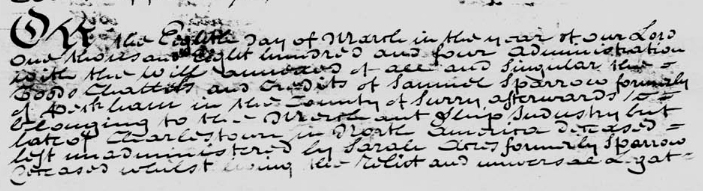 On the Eighth Day of March in the year of our Lord
One thousand Eight hundred and four Administration
with the Will annexed of all and Singular the
Goods Chattels and Credits of Samuel Sparrow formerly
of Peckham in the County of Surry, afterwards
belonging to the Merchant Ship Industry but
late of Charlestown in North America deceased =
left unadministered by Sarah Acres formerly Sparrow
deceased whilst living the Relict and universal Legat=